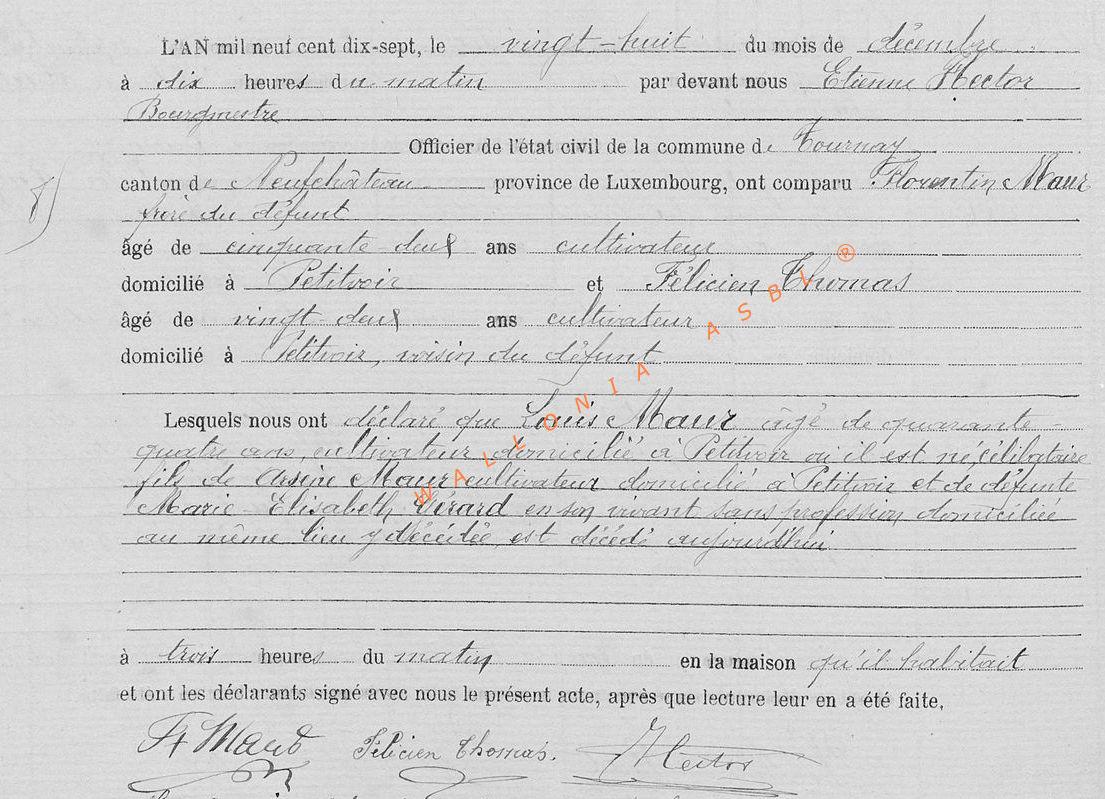 L'AN mil neuf cent dix-sept, le vingt-huit du mois de décembre
à dix heures du matin par devant nous Etienne Hector
Bourgmestre
Officier de l'état civil de la commune de Tournay
canton de Neufchâteau province de Luxembourg, ont comparu Florentin Maur
frère du défunt
âgé de cinquante-deux ans cultivateur
domicilié à Petitvoir et Félicien Thomas
âgé de vingt-deux ans cultivateur
domicilié à Petitvoir, voisin du défunt
Lesquels nous ont déclaré que Louis Maur âgé de quarante-
quatre ans, cultivateur domicilié à Petitvoir où il est né, célibataire
fils de Arsène Maur cultivateur domicilié à Petitvoir et de défunte
Marie-Elisabeth Gérard en son vivant sans profession domiciliée
au même lieu y décédée, est décédé aujourd'hui
à trois heures du matin en la maison qu'il habitait
et ont les déclarants signé avec nous le présent acte, après que lecture leur en a été faite,
Félicien Thomas. Hector
WALLONIA ASBL ®